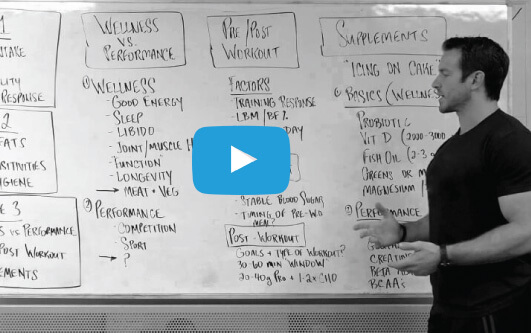 1
INTAKE
QUALITY
RESPONSE
2
EATS
HYGIENE
3
VS PERFORMANCE
POST WORKOUT
WELLNESS
VS.
PERFORMANCE
① WELLNESS
- GOOD ENERGY
- SLEEP
- LIBIDO
- JOINT/MUSCLE H
- FUNCTION
- LONGEVITY
→ MEAT + VEG
② PERFORMANCE
- COMPETITION
- SPORT
→ ?
PRE/POST
WORKOUT
FACTORS
- TRAINING RESPONSE
- LBM/BF%
DAY
- STABLE BLOOD SUGAR
- TIMING OF PRE-WO
MEAL?
POST-WORKOUT
GOALS + TYPE OF WORKOUT?
30-60 MIN WINDOW
20-40g PRO + 1-2x CHO
SUPPLEMENTS
"ICING ON CAKE
① BASICS (WELLNES
PROBIOTIC
VIT D (2000-3000
FISH OIL (2-3
GREENS OR M
MAGNESIUM
② PERFORMANCE
CREATIN
BETA
BCAA's